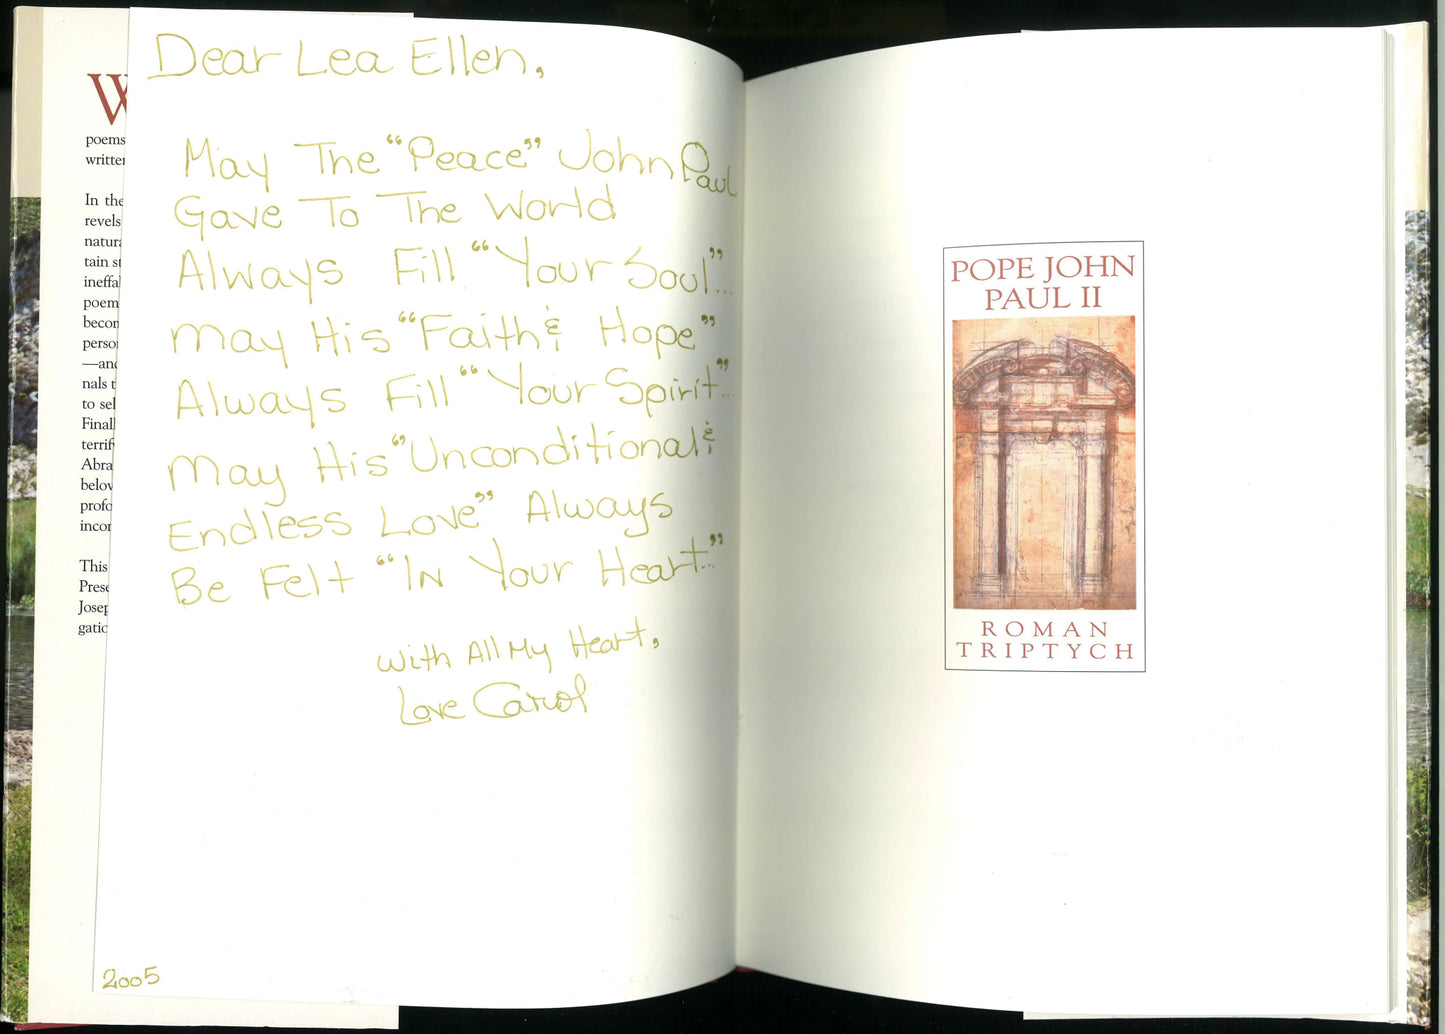 Dear Lea Ellen,
May The "Peace" John Paul
Gave To The World
Always Fill "Your Soul"...
May His "Faith & Hope"
Always Fill "Your Spirit"...
May His "Unconditional &
Endless Love" Always
Be Felt "In Your Heart"...
With All My Heart,
Love Carol
2005
W
poems
written
In the
revels
natura
tain st
ineffa
poem
becom
perso
—and
nals t
to sel
Finall
terrif
Abra
belov
profo
incor
This
Prese
Josep
gatio
POPE JOHN
PAUL II
ROMAN
TRIPTYCH